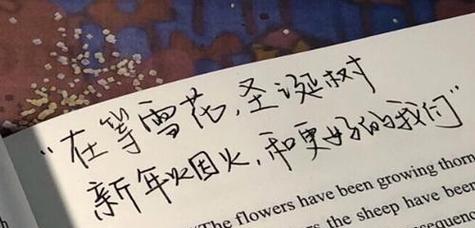 “在等雪花，圣诞树
新年烟火，和更好的我们”
The flowers have been growing thorn
the sheep have been